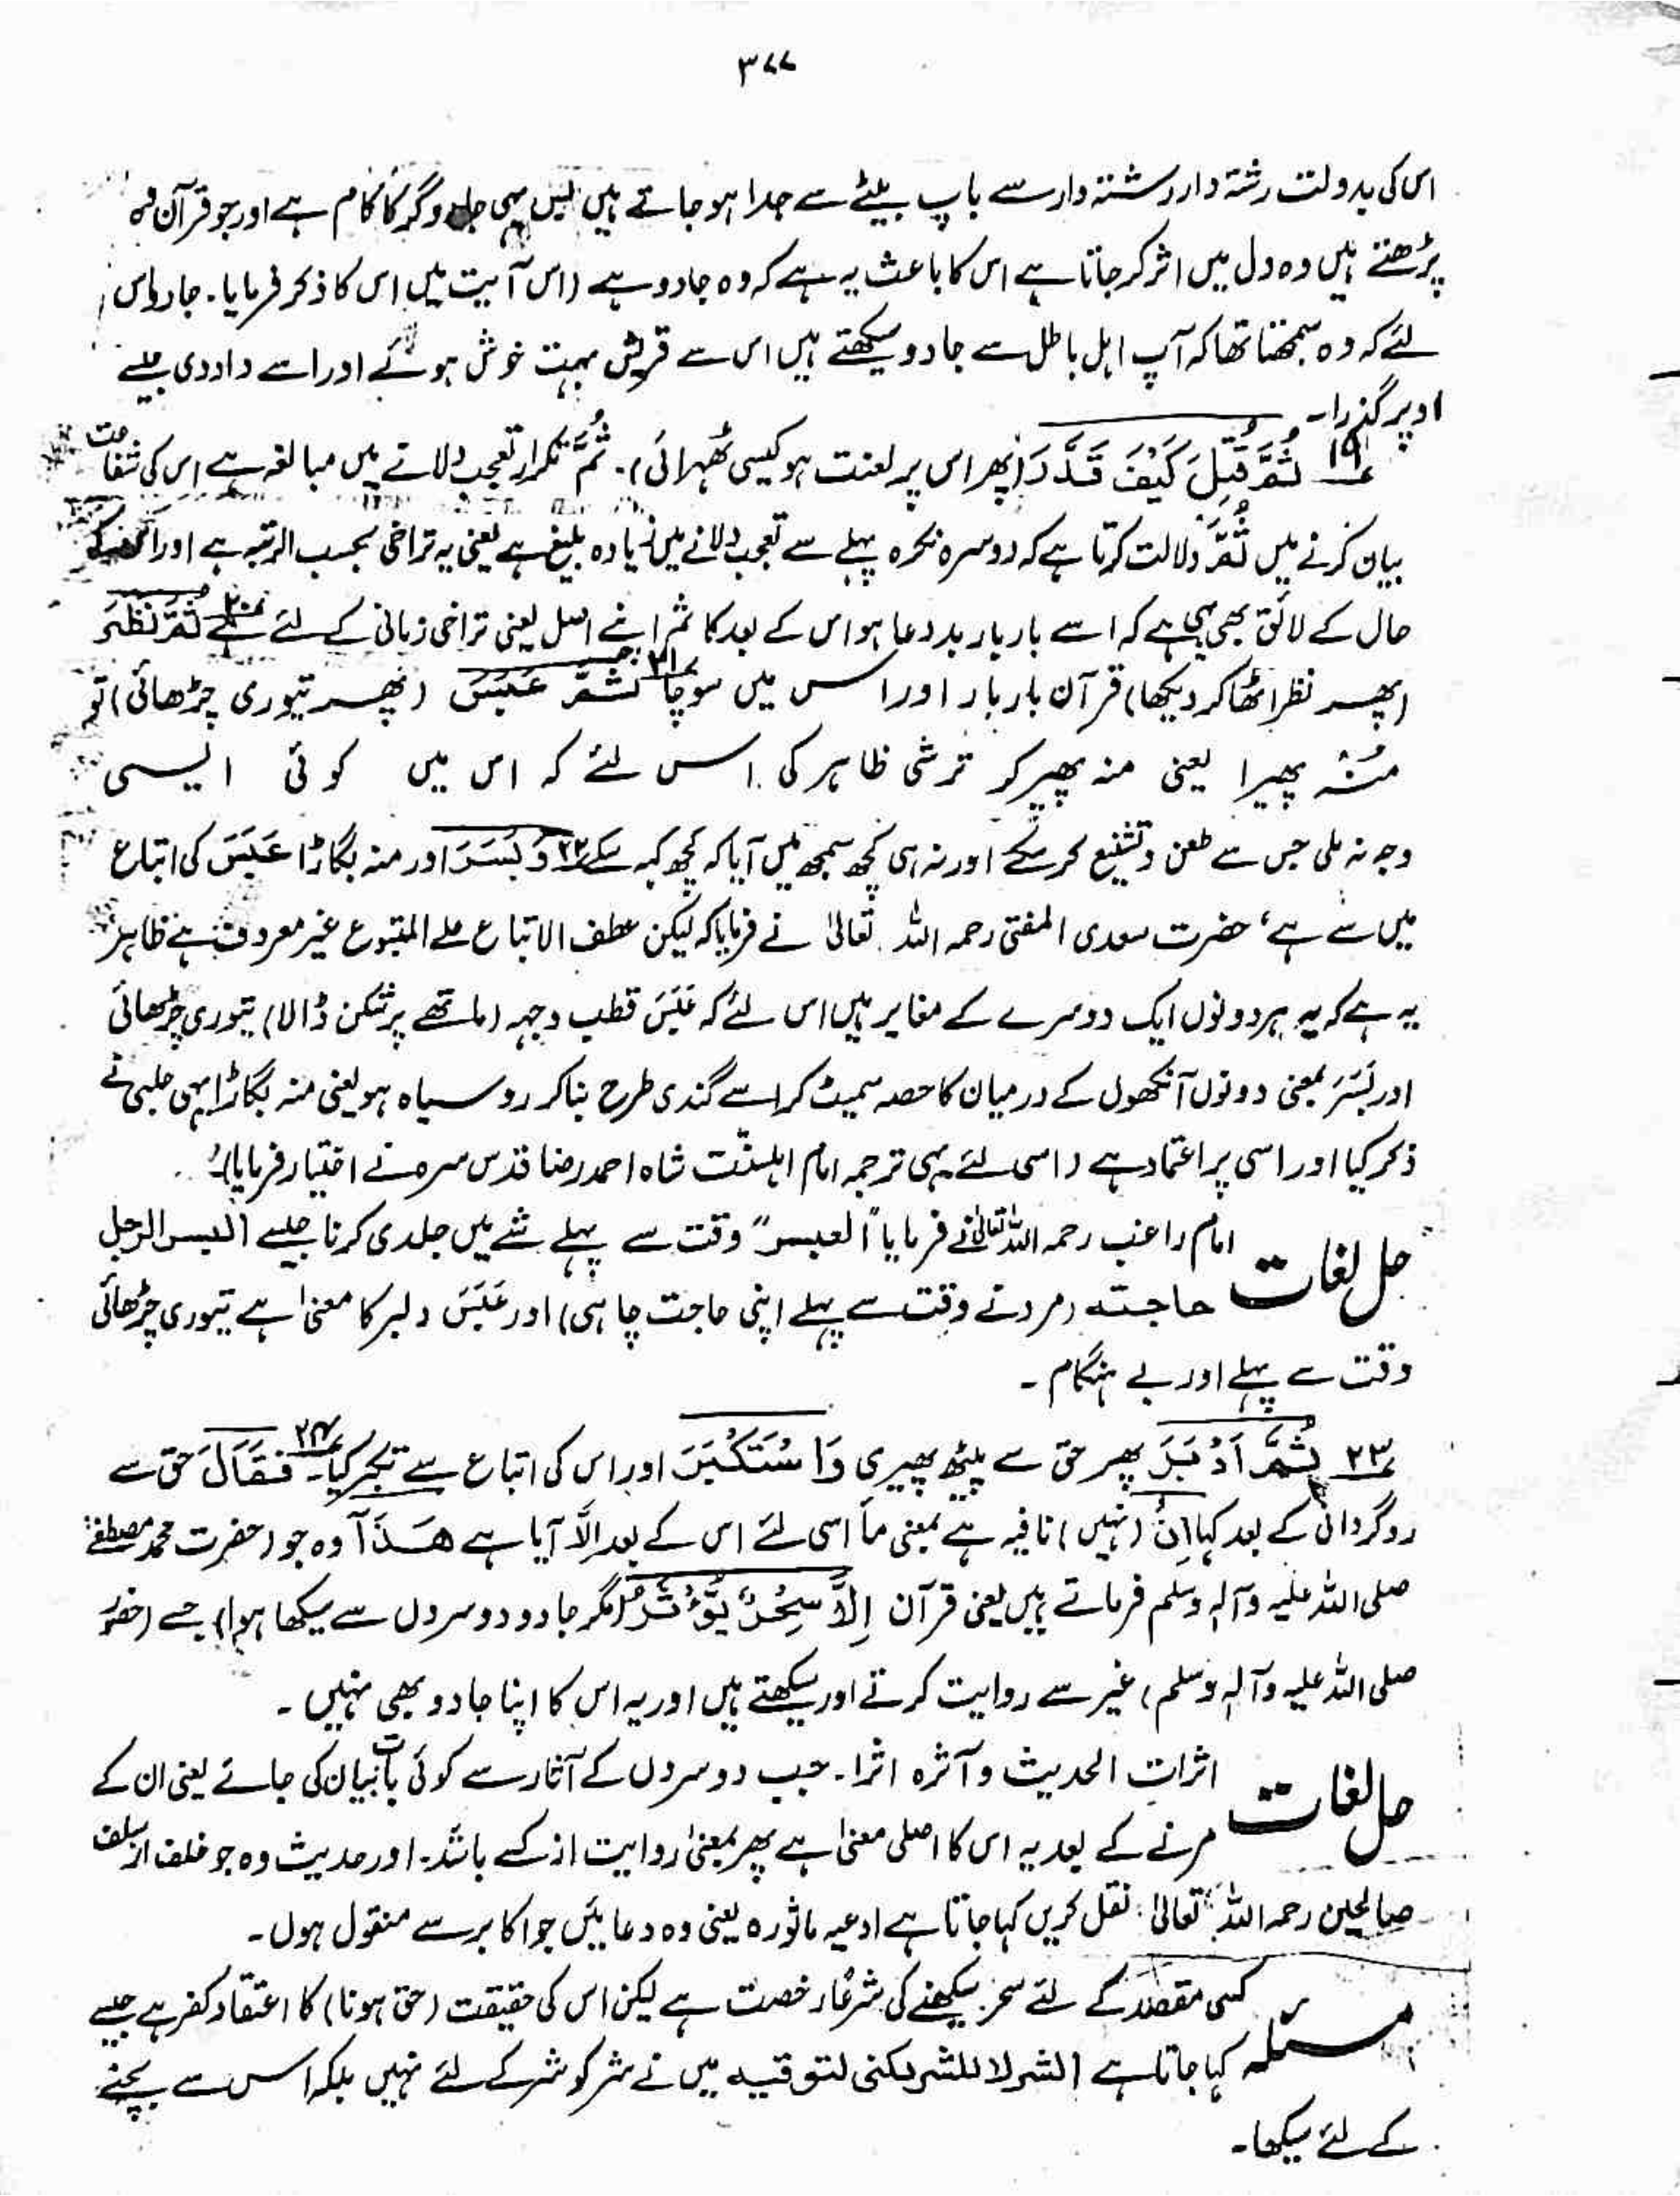 ۳۷۷
اس کی بدولت رشتہ دار رشتہ دار سے باپ بیٹے سے جدا ہو جاتے ہیں لیس یہی جادوگر کا کام ہے اور جو قرآن وہ
پڑھتے ہیں وہ دل میں اثر کر جاتا ہے اس کا باعث یہ ہے کہ وہ جادو ہے (اس آیت میں اس کا ذکر فرمایا۔ جادو اس
لئے کہ وہ سمجھتا تھا کہ آپ اہل باطل سے جادو سیکھتے ہیں اس سے قریش بہت خوش ہوئے اور اسے داد دی جیسے
اوپر گذرا۔
۱۹ ثُمَّ قُتِلَ كَيْفَ قَدَّرَ (پھر اس پر لعنت ہو کیسی ٹھہرائی)۔ ثُمَّ تکرار تعجب دلانے میں مبالغہ ہے اس کی شقاوت
بیان کرنے میں ثُمَّ دلالت کرتا ہے کہ دوسرہ نکرہ پہلے سے تعجب دلانے میں زیادہ بلیغ ہے یعنی یہ تراخی بحسب الرتبہ ہے اور اس کے
حال کے لائق بھی یہی ہے کہ اسے بار بار بددعا ہو اس کے بعد کا ثم اپنے اصل یعنی تراخی زمانی کے لئے ہے ۲۰ ثُمَّ نَظَرَ
(پھر نظر اٹھا کر دیکھا) قرآن بار بار اور اس میں سوچا ۲۱ ثُمَّ عَبَسَ (پھر تیوری چڑھائی) تو
منہ پھیرا یعنی منہ پھیر کر ترشی ظاہر کی اس لئے کہ اس میں کوئی ایسی
وجہ نہ ملی جس سے طعن و تشنیع کر سکے اور نہ ہی کچھ سمجھ میں آیا کہ کچھ کہہ سکے ۲۲ وَ بَسَرَ اور منہ بگاڑا عَبَسَ کی اتباع
میں سے ہے، حضرت سعدی المفتی رحمہ اللہ تعالیٰ نے فرمایا کہ لیکن عطف الاتباع علے المتبوع غیر معروف ہے ظاہر
یہ ہے کہ یہ ہر دونوں ایک دوسرے کے مغایر ہیں اس لئے کہ عَبَسَ قطب وجہہ (ماتھے پر شکن ڈالا) تیوری چڑھائی
اور بَسَرَ بمعنی دونوں آنکھوں کے درمیان کا حصہ سمیٹ کر اسے گندی طرح بنا کر رو سیاہ ہو یعنی منہ بگاڑا یہی حلبی نے
ذکر کیا اور اسی پر اعتماد ہے (اسی لئے یہی ترجمہ امام اہلسنّت شاہ احمد رضا قدس سرہ نے اختیار فرمایا)۔
حل لغات امام راغب رحمہ اللہ تعالیٰ نے فرمایا "العبسر" وقت سے پہلے شے میں جلدی کرنا جیسے البسر الرجل
حاجتہ (مرد نے وقت سے پہلے اپنی حاجت چاہی) اور عَبَسَ و بسر کا معنیٰ ہے تیوری چڑھائی
وقت سے پہلے اور بے ہنگام۔
۲۳ ثُمَّ اَدْبَرَ پھر حق سے پیٹھ پھیری وَاسْتَكْبَرَ اور اس کی اتباع سے تکبر کیا۔ ۲۴ فَقَالَ حق سے
روگردانی کے بعد کہا اِنْ (نہیں) نافیہ ہے بمعنی ما اسی لئے اس کے بعد الّا آیا ہے هٰذَآ وہ جو (حضرت محمد مصطفےٰ
صلی اللہ علیہ وآلہ وسلم فرماتے ہیں یعنی قرآن اِلَّا سِحْرٌ يُّؤْثَرُ (مگر جادو دوسروں سے سیکھا ہوا) جسے (حضور
صلی اللہ علیہ وآلہ وسلم) غیر سے روایت کرتے اور سیکھتے ہیں اور یہ اس کا اپنا جادو بھی نہیں۔
حل لغات اثرات الحدیث و آثرہ اثرا۔ جب دوسروں کے آثار سے کوئی بات بیان کی جائے یعنی ان کے
مرنے کے بعد یہ اس کا اصلی معنیٰ ہے پھر بمعنیٰ روایت از کسے باشد۔ اور حدیث وہ جو خلف از سلف
صالحین رحمہ اللہ تعالیٰ نقل کریں کہا جاتا ہے ادعیہ ماثورہ یعنی وہ دعائیں جو اکابر سے منقول ہوں۔
مسئلہ کسی مقصد کے لئے سحر سیکھنے کی شرعًا رخصت ہے لیکن اس کی حقیقت (حق ہونا) کا اعتقاد کفر ہے جیسے
کہا جاتا ہے الشر لا للشر لکنی لتوقیہ میں نے شر کو شر کے لئے نہیں بلکہ اس سے بچنے
کے لئے سیکھا۔